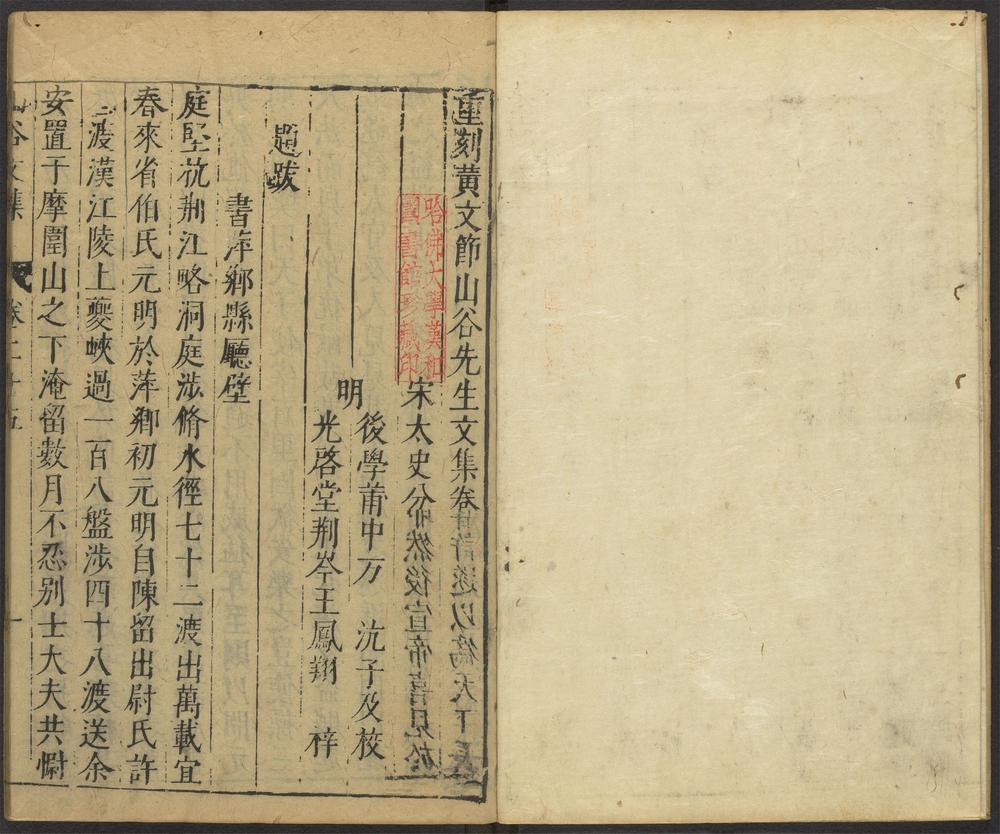 重刻黃文節山谷先生文集卷
宋太史
明
後學莆中方沆子及校
光啓堂荆岑王鳳翔梓
題跋
書萍鄉縣廳壁
庭堅杭荆江略洞庭涉脩水徑七十二渡出萬載宜
春來省伯氏元明於萍鄉初元明自陳留出尉氏許
渡漢江陵上夔峽過一百八盤涉四十八渡送余
安置于摩圍山之下淹留數月不忍別士大夫共慰
山谷文集
卷二十五
一
哈佛大學漢和
圖書館珍藏印